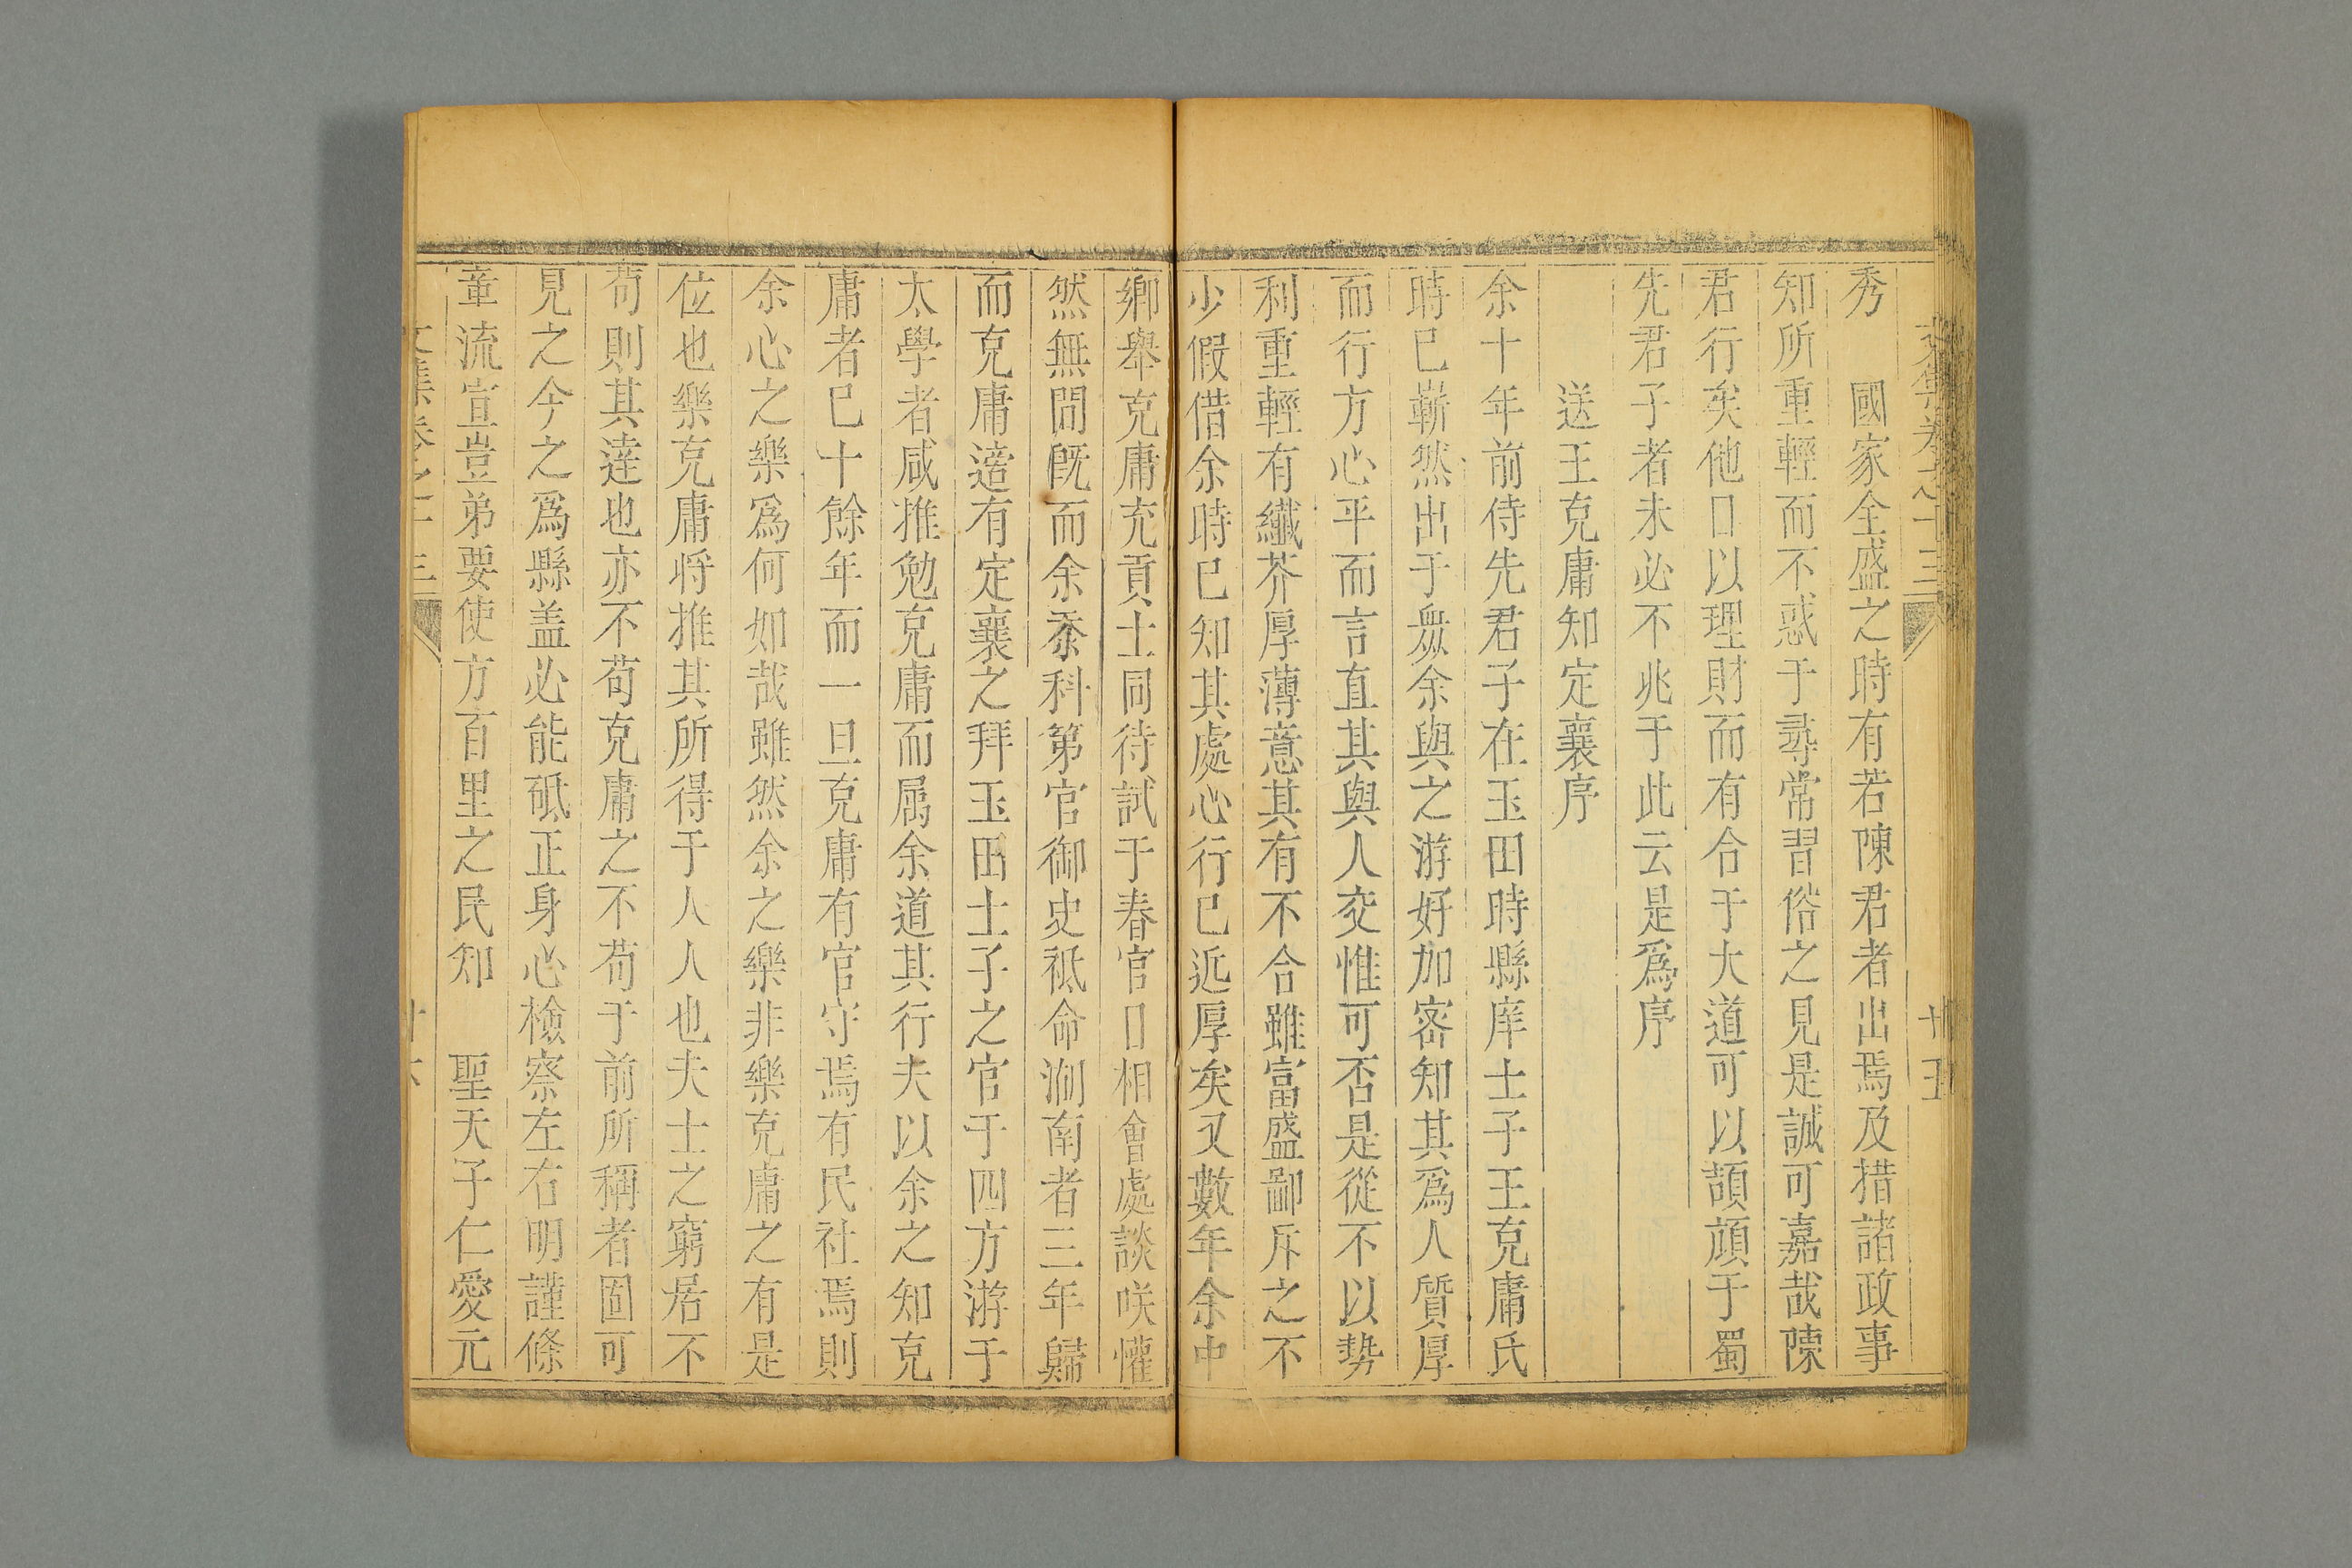 文集卷之十三
廿五
秀　國家全盛之時有若陳君者出焉及措諸政事
知所重輕而不惑于尋常習俗之見是誠可嘉哉陳
君行矣他日以理財而有合于大道可以頡頏于蜀
先君子者未必不兆于此云是爲序
送王克庸知定襄序
余十年前侍先君子在玉田時縣庠士子王克庸氏
時已嶄然出于衆余與之游好加密知其爲人質厚
而行方心平而言直其與人交惟可否是從不以勢
利重輕有纖芥厚薄意其有不合雖富盛鄙斥之不
少假借余時已知其處心行已近厚矣又數年余中
鄉舉克庸充貢士同待試于春官日相會處談咲懽
然無間旣而余忝科第官御史祗命湖南者三年歸
而克庸適有定襄之拜玉田士子之官于四方游于
太學者咸推勉克庸而屬余道其行夫以余之知克
庸者已十餘年而一旦克庸有官守焉有民社焉則
余心之樂爲何如哉雖然余之樂非樂克庸之有是
位也樂克庸将推其所得于人人也夫士之窮居不
苟則其逹也亦不苟克庸之不苟于前所稱者固可
見之今之爲縣盖必能砥正身心檢察左右明謹條
章流宣豈弟要使方百里之民知　聖天子仁愛元
文集卷之十三